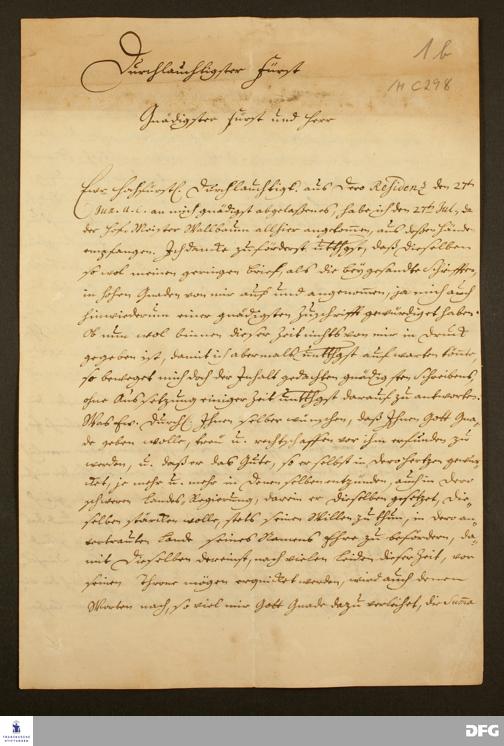 1 b
M C298
Durchlauchtigster Fürst
Gnädigster Fürst und Herr
Ewr. Hochfürstl. Durchlauchtigk. aus Dero Residenz den 27t
an mich gnädigst abgelaßenes, habe ich den 27t Jul., da
der Hof-Meister Wallbaum allhier angekommen, aus deßen Händen
empfangen. Ich dancke zuförderst untthgst, daß dieselben
so wol meinen geringen brief, als die beygesandte Schrifften,
in hohen Gnaden von mir auf und angenommen, ja mich auch
hinwiederum einer gnädigsten Zuschrifft gewürdiget haben.
Ob nun wol binnen dieser Zeit nichts von mir in Druck
gegeben ist, damit ich abermals untthgst aufwarten könte,
so beweget mich doch der Inhalt gedachten gnädigsten Schreibens
ohne Aussetzung einiger Zeit untthgst darauf zu antworten.
Was Ew. Durchl. Ihnen selber wünschen, daß Ihnen Gott Gna-
de geben wolle, treu u. rechtschaffen vor ihm erfunden zu
werden, u. daß er das Gute, so er selbst in Dero Hertzen gewir-
cket, je mehr u. mehr in Denenselben entzünden, auch in Dero
schweren Landes-Regierung, darein er Dieselben gesetzet, Die-
selben stärcken wolle, stets seinen Willen zu thun, in Dero an-
vertrauten Lande seines Namens Ehre zu befördern, da-
mit Dieselben dereinst, nach vielen Leiden dieser Zeit, vor
seinem Throne mögen erquicket werden, wird auch denen
Worten nach, so viel mir Gott Gnade dazu verleihet, die Summa
FRANCKESCHE
STIFTUNGEN
DFG